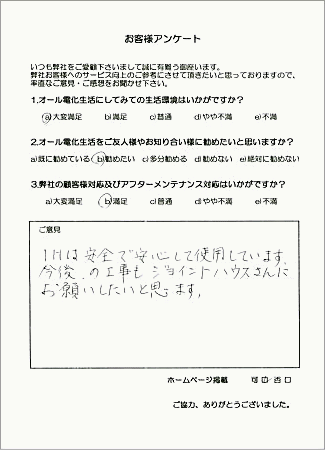 お客様アンケート
いつも弊社をご愛顧下さいまして誠に有難う御座います。
弊社お客様へのサービス向上のご参考にさせて頂きたいと思っておりますので、
率直なご意見・ご感想をお聞かせ下さい。
1.オール電化生活にしてみての生活環境はいかがですか？
a)大変満足 b)満足 c)普通 d)やや不満 e)不満
2.オール電化生活をご友人様やお知り合い様に勧めたいと思いますか？
a)既に勧めている b)勧めたい c)多分勧める d)勧めない e)絶対に勧めない
3.弊社の顧客様対応及びアフターメンテナンス対応はいかがですか？
a)大変満足 b)満足 c)普通 d)やや不満 e)不満
ご意見
IHは安全で安心して使用しています。
今後の工事もジョイントハウスさんに
お願いしたいと思います。
ホームページ掲載 可
ご協力、ありがとうございました。